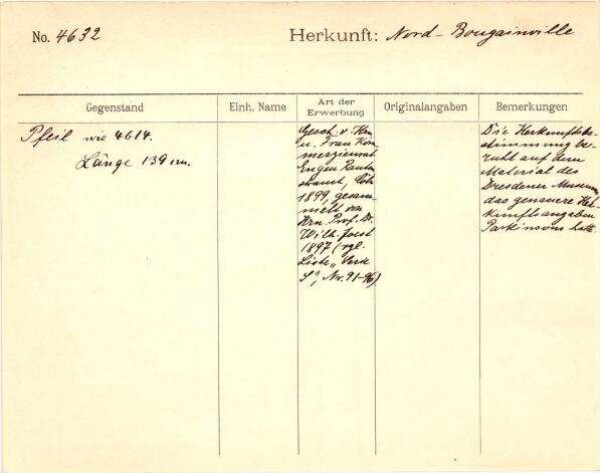 No. 4632
Herkunft: Nord-Bougainville
Gegenstand
Einh. Name
Art der
Erwerbung
Originalangaben
Bemerkungen
Pfeil wie 4614.
Länge 139 cm.
Gesch. v. Hrn
u. Frau Kom-
merzienrat
Eugen Rauten-
strauch, Cöln
1899, gesam-
melt von
Hrn. Prof. Dr.
Wilh. Joest
1897 (vgl.
Liste „Verd
S", Nr. 91-96)
Die Herkunftsbe-
stimmung be-
ruht auf dem
Material des
Dresdener Museums,
das genauere Her-
kunftsangaben
Parkinsons hatte.